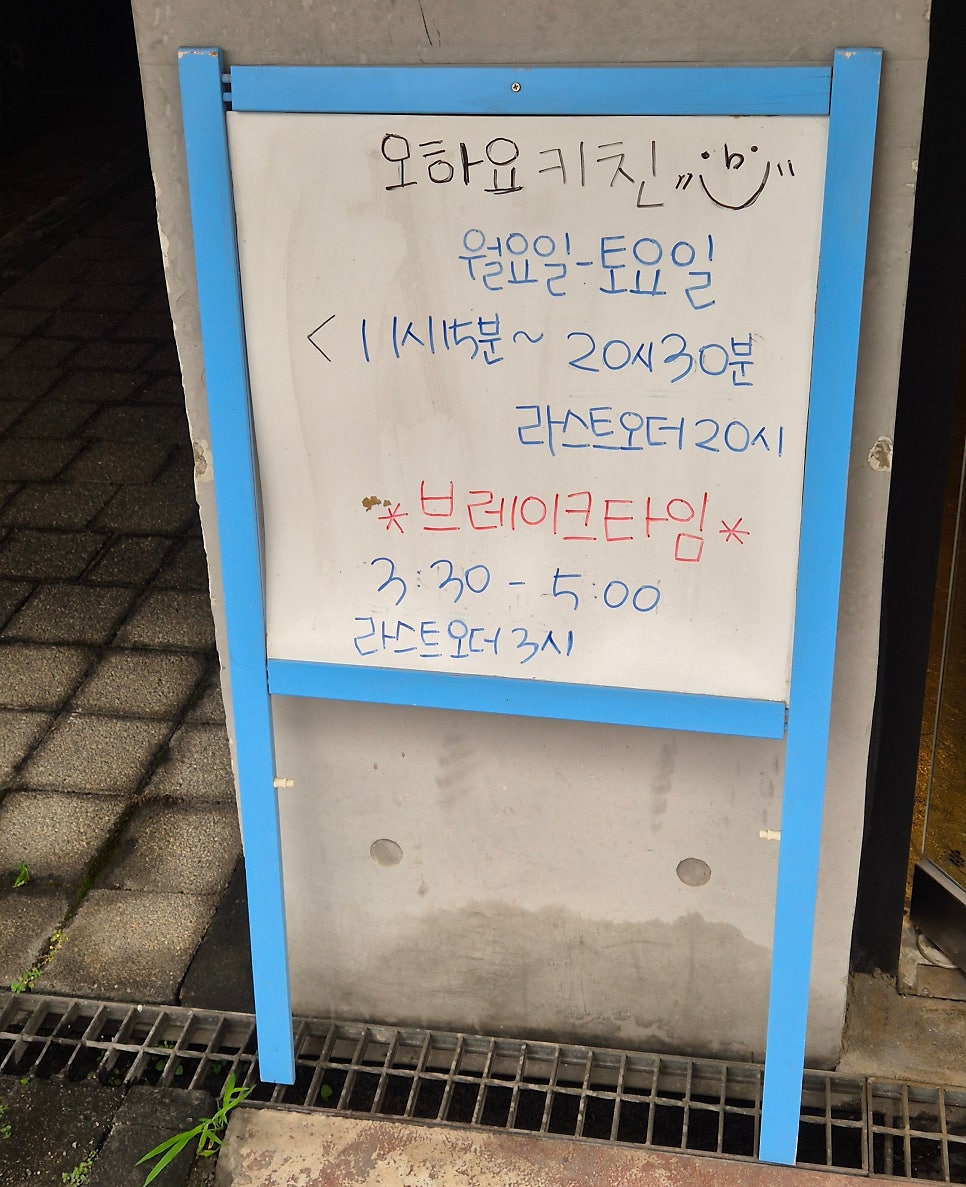 오하요 키친
월요일-토요일
< 11시15분 ~ 20시30분
라스트오더 20시
*브레이크타임*
3:30 - 5:00
라스트오더 3시